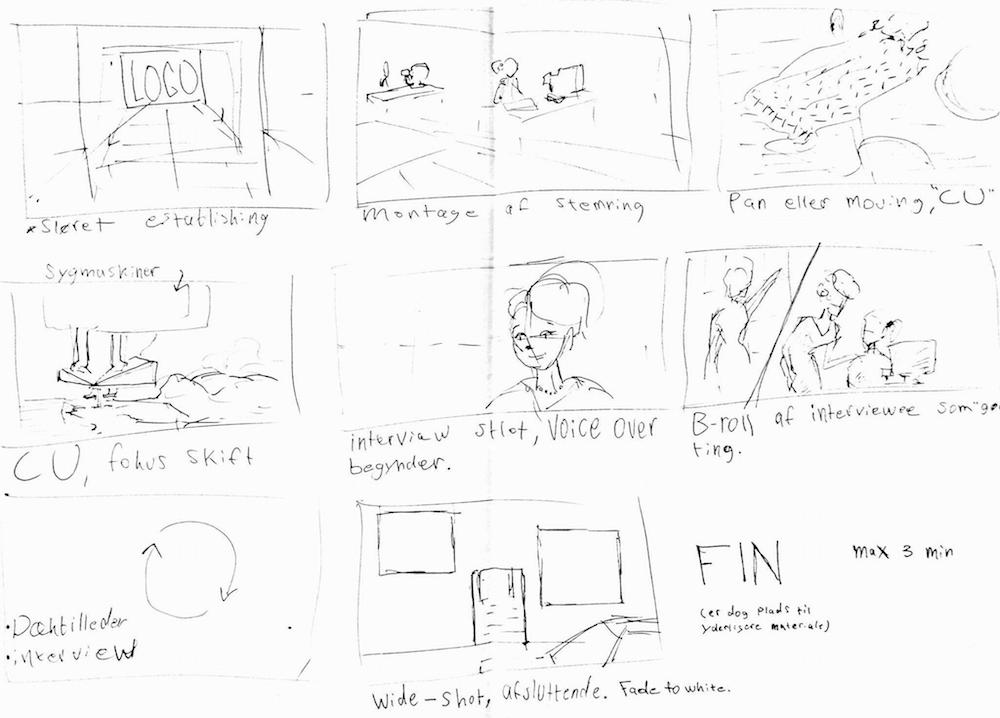 LOGO
*Sløret establishing
Montage af stemning
Pan eller moving, "CU"
Sygmaskiner
CU, fokus skift
interview shot, VOICE OVER
begynder.
B-roll af interviewee som "gør
ting.
•Dækbilleder
•interview
Wide-shot, afsluttende. Fade to white.
FIN
max 3 min
(er dog plads til
yderligere materiale)